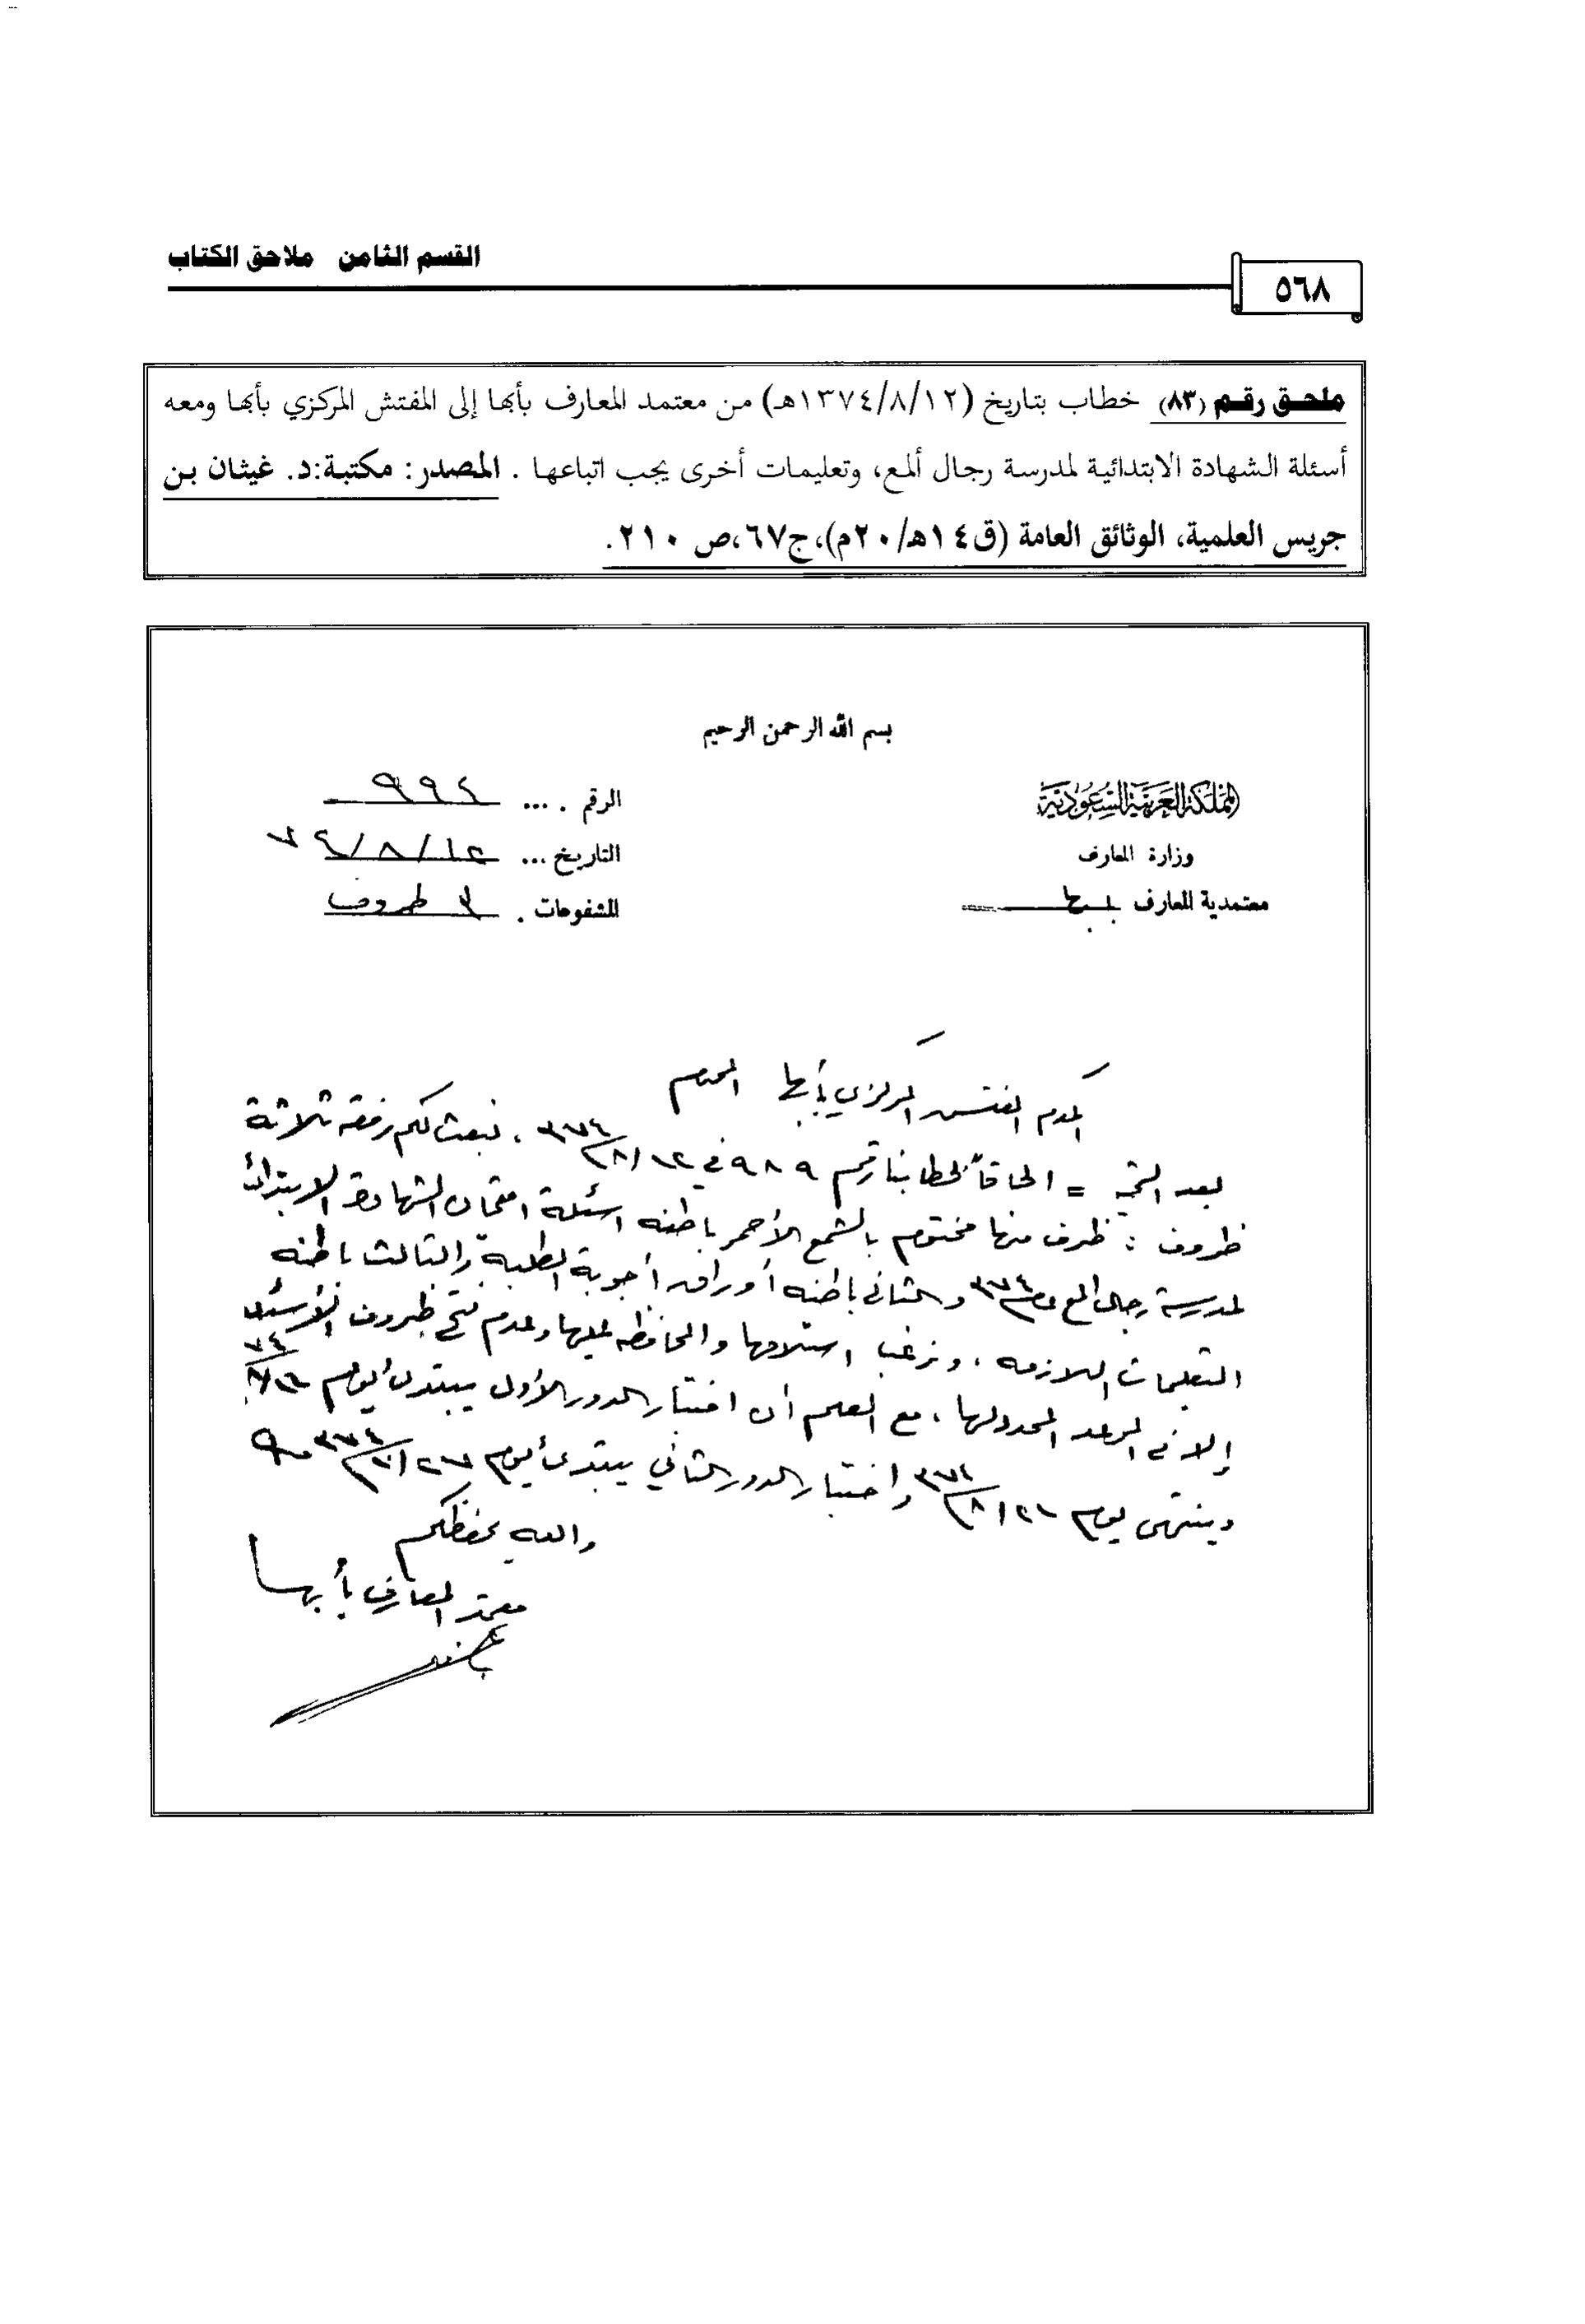 القسم الثامن ملاحق الكتاب
٥٦٨
ملحق رقم (٨٣) خطاب بتاريخ (١٣٧٤/٨/١٢هـ) من معتمد المعارف بأبها إلى المفتش المركزي بأبها ومعه
أسئلة الشهادة الابتدائية لمدرسة رجال ألمع، وتعليمات أخرى يجب اتباعها . المصدر: مكتبة:د. غيثان بن
جريس العلمية، الوثائق العامة (ق١٤هـ/٢٠م)، ج٦٧، ص ٢١٠.
بسم الله الرحمن الرحيم
المملكة العربية السعودية
وزارة المعارف
معتمدية المعارف بأبها
الرقم . ... ٩٩٤
التاريخ ... ٧٤/٨/١٢
المشفوعات . ٣ ظروف
المكرم المفتش المركزي بأبها المحترم
بعد التحية = الحاقاً لخطابنا رقم ٩٨٩ في ٣٧٤/٨/١٢ ، نبعث لكم برفقه ثلاثة
ظروف : ظرف منها مختوم بالشمع الأحمر باطنه اسئلة امتحان الشهادة الابتدائية
لمدرسة رجال المع عام ٣٧٤ والثاني باطنه أوراق أجوبة الطلبة والثالث باطنه
التعليمات اللازمه ، ونرغب استلامها والمحافظه عليها وعدم فتح ظروف الأسئلة
إلا في الموعد المحدد لها ، مع العلم أن اختبار الدور الأول يبتدئ يوم
وينتهي يوم واختبار الدور الثاني يبتدئ يوم
والله يحفظكم
معتمد المعارف بأبها